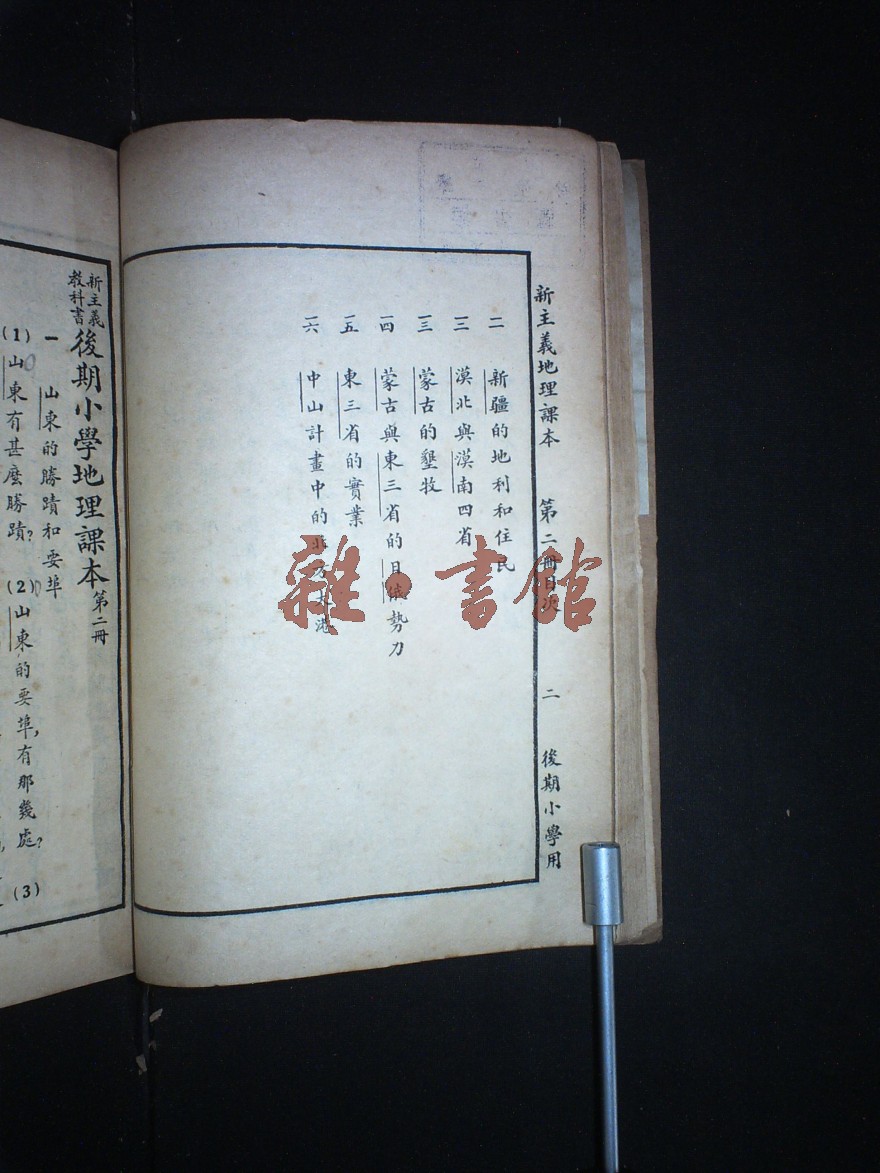 新主義地理課本 第二冊目次 二 後期小學用
一一 新疆的地利和住民
一二 漠北與漠南四省
一三 蒙古的墾牧
一四 蒙古與東三省的日俄勢力
一五 東三省的實業
一六 中山計畫中的北方大港
新主義教科書 後期小學地理課本 第二冊
一 山東的勝蹟和要埠
(1)山東有甚麼勝蹟?(2)山東的要埠,有那幾處?(3)
雜·書館